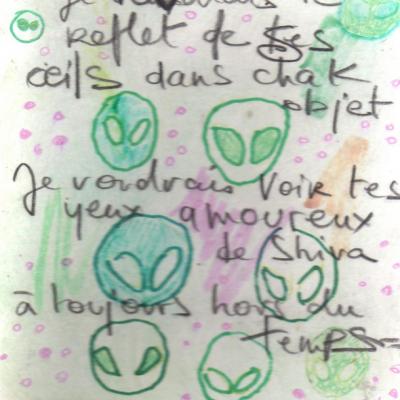 reflet de tes
œils dans chak
objet
Je voudrais voir tes
yeux amoureux
de Shiva
à toujours hors du
temps